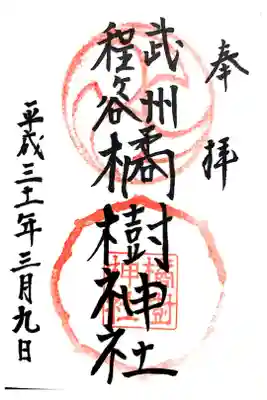 奉拝
武州
程ヶ谷
橘樹神社
橘樹
神社
平成三十一年三月九日